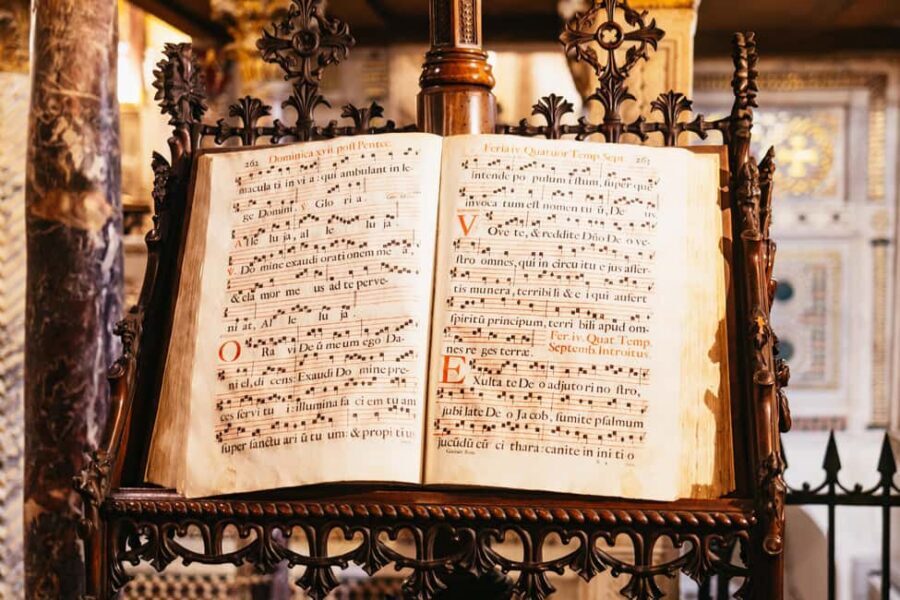 262 Dominica xvii. post Pentec.
macula ti in vi a : qui ambulant in le-
ge Domini. Glo ri a.
Alle lu ja, al le lu ja.
℣. Do mine exaudi orationem me a,
& cla mor me us ad te perve-
ni at, Al le lu ja!
O Ra vi De ū me um ego Da-
ni el, di cens: Exaudi Do mine pre-
ces servi tu i : illumina fa ci em tu am
super sanctu ari ū tu um: & propi ti us
Feria iv. Quatuor Temp. Sept. 263
intende po pulum istum, super quē
invoca tum est nomen tu ū, De us
VOve te, & reddite Dño De o ve-
stro omnes, qui in circu itu e jus affer-
tis munera, terribi li & e i qui aufert
spiritū principum, terri bili apud om-
nes re ges terræ. Fer. iv. Quat. Temp.
Septemb. Introitus.
EXulta te De o adjuto ri no stro,
jubi late De o Ja cob, sumite psalmum
jucūdū cū ci thara : canite in ini ti o